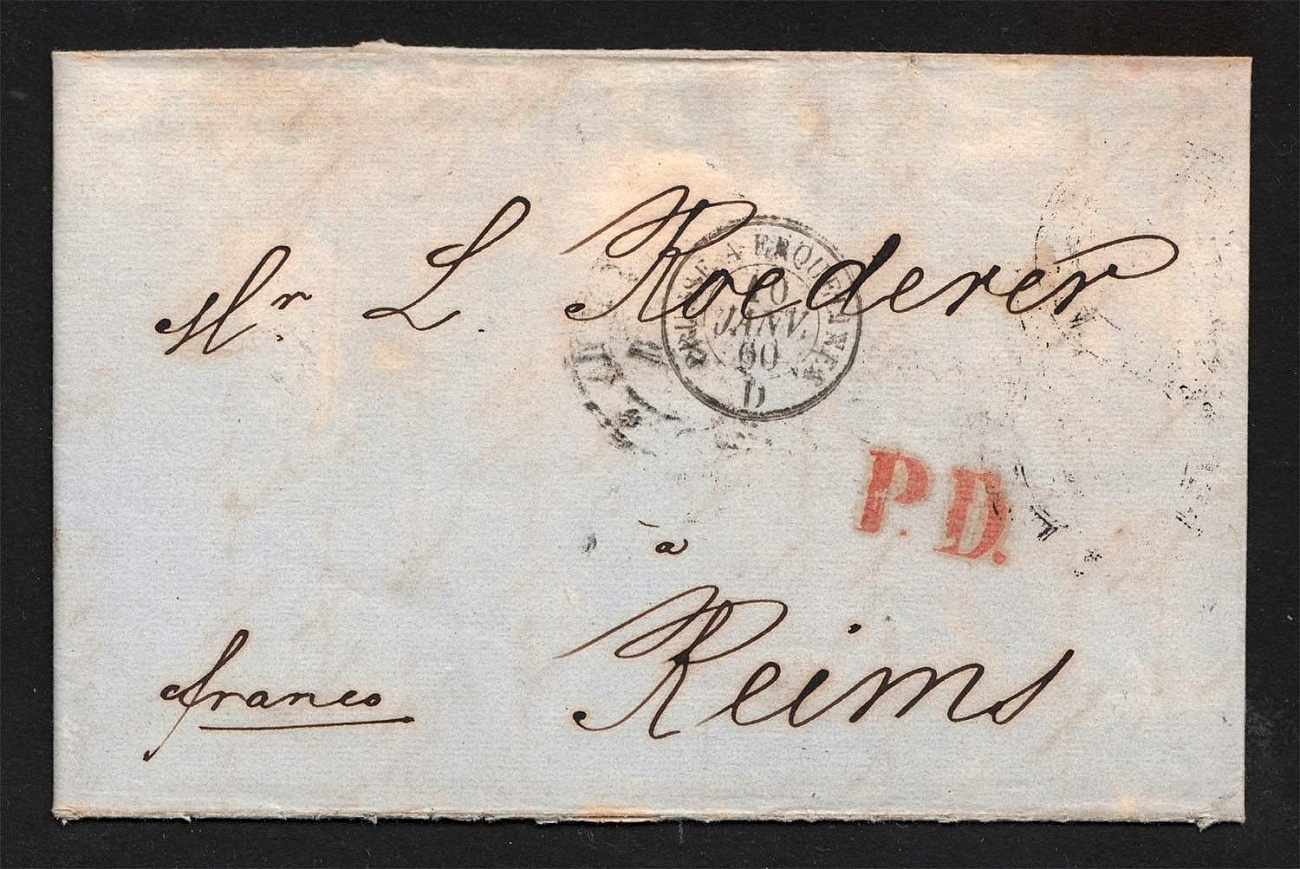 Mr L. Roederer
PRUSSE A ERQUELINES
10
JANV.
60
D
P.D.
à
Reims
franco